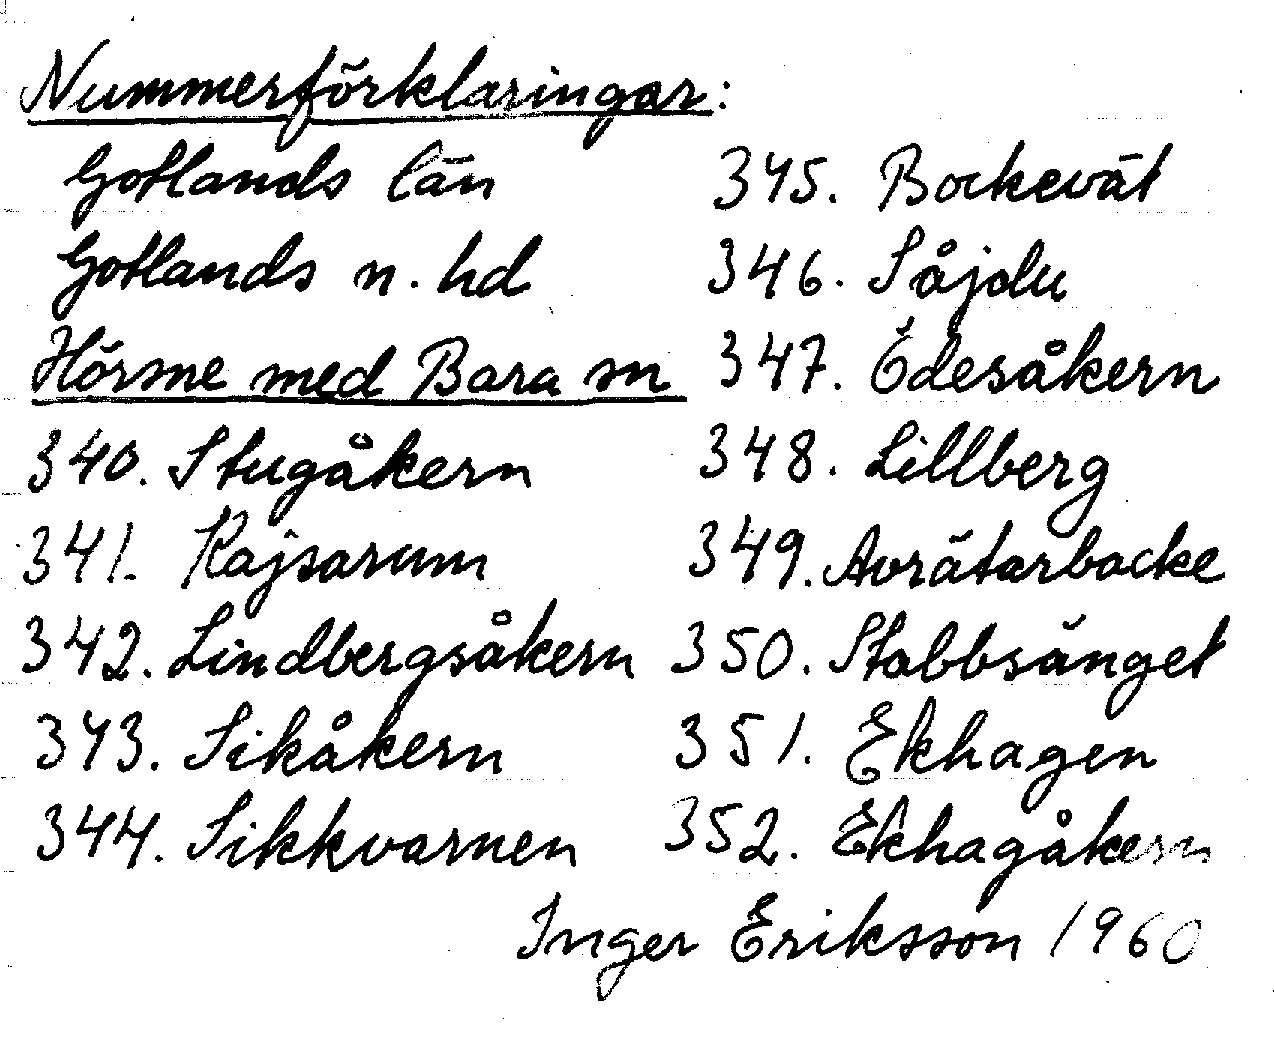 Nummerförklaringar:
Gotlands län
Gotlands n. hd
Hörsne med Bara sn
340. Stugåkern
341. Kajsarum
342. Lindbergsåkern
343. Sikåkern
344. Sikkvarnen
345. Bockevät
346. Såjdu
347. Ödesåkern
348. Lillberg
349. Avrätarbacke
350. Stabbsänget
351. Ekhagen
352. Ekhagåkern
Inger Eriksson 1960